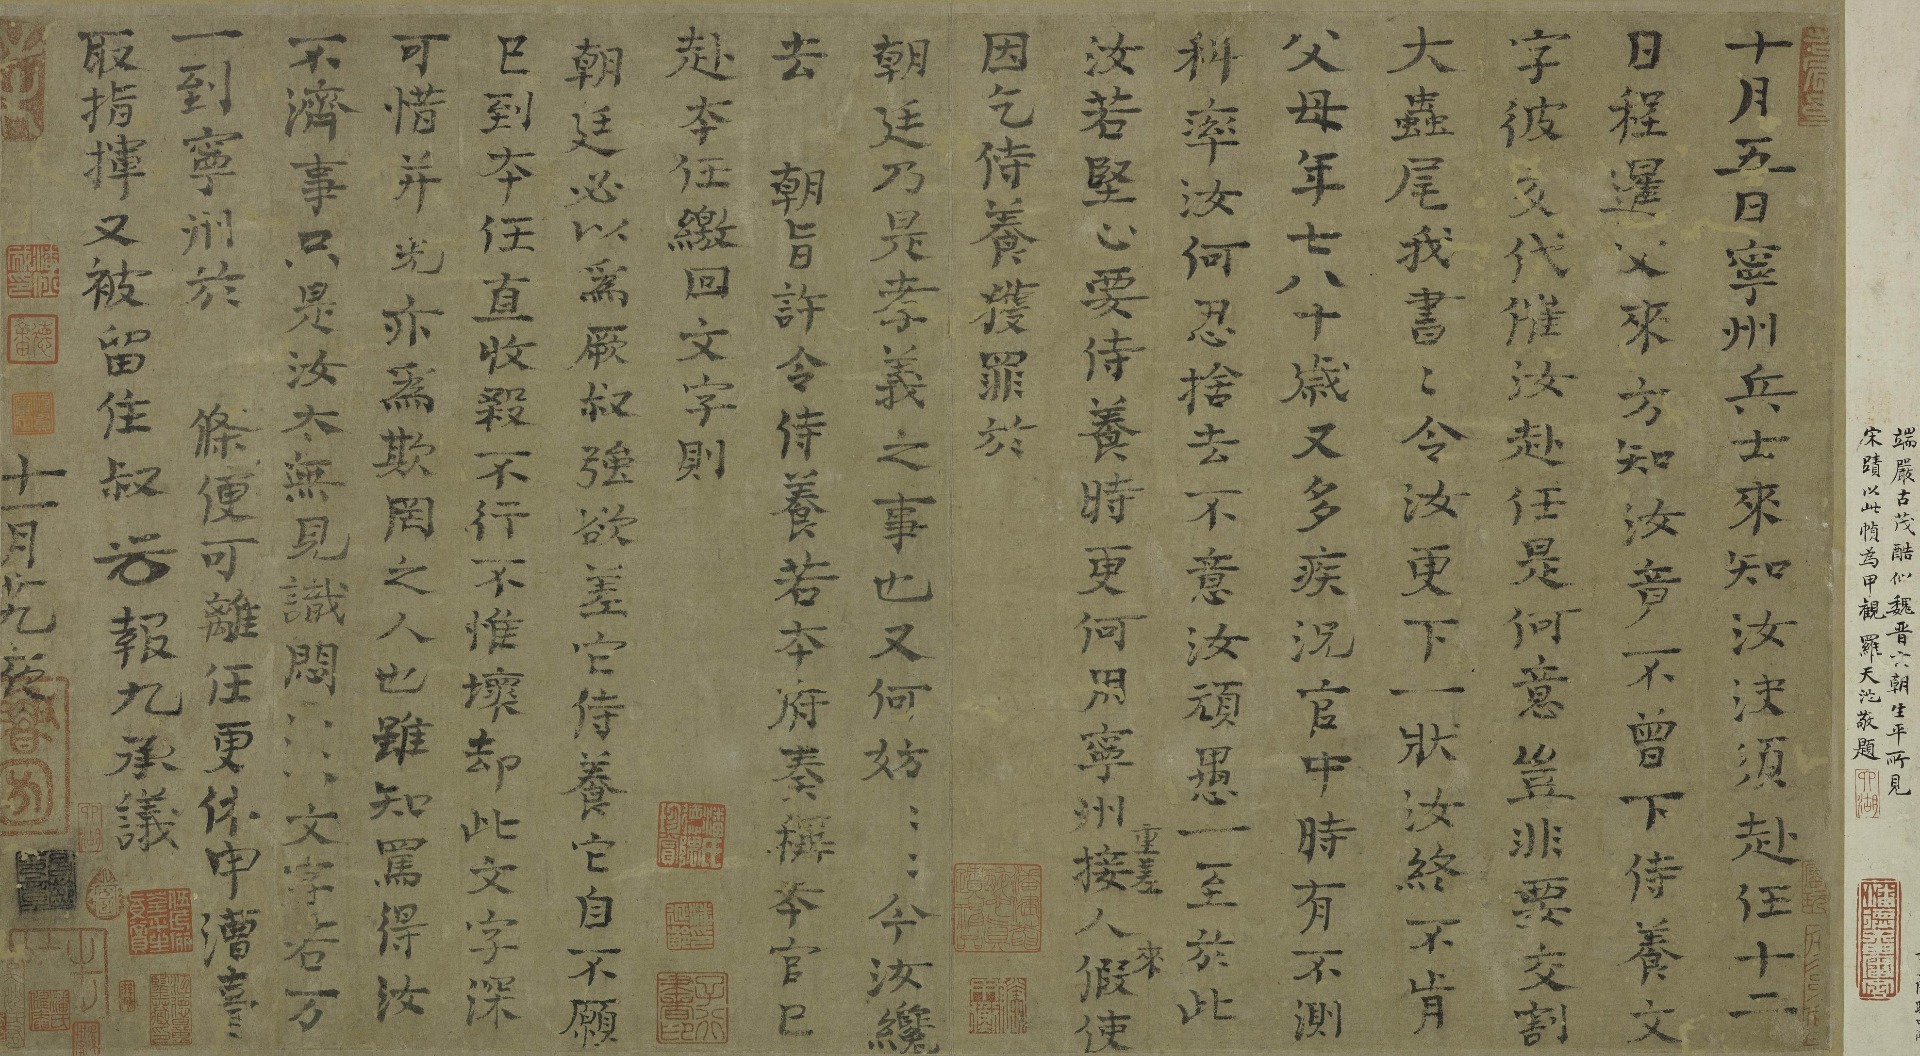 十月五日寧州兵士來知汝決須赴任十二
日程暹父來方知汝音不曾下侍養文
字彼交代催汝赴任是何意豈非要交割
大蟲尾我書〻令汝更下一狀汝終不肯
父母年七八十歲又多疾況官中時有不測
科率汝何忍捨去不意汝頑愚一至於此
汝若堅心要侍養時更何用寧州接人假使
重差 來
因乞侍養獲罪於
朝廷乃是孝義之事也又何妨〻〻今汝纔
去 朝旨許令侍養若本府奏稱本官已
赴本任繳回文字則
朝廷必以為厥叔強欲差它侍養它自不願
已到本任直收殺不行不惟壞却此文字深
可惜并光亦為欺罔之人也雖知罵得汝
不濟事只是汝太無見識悶〻〻文字右万
一到寧州於 條便可離任更休申漕臺
取指揮又被留住叔 報九承議
十一月廿九夜
端嚴古茂酷似魏晋六朝生平所見
宋蹟以此幀為甲觀 羅天池敬題